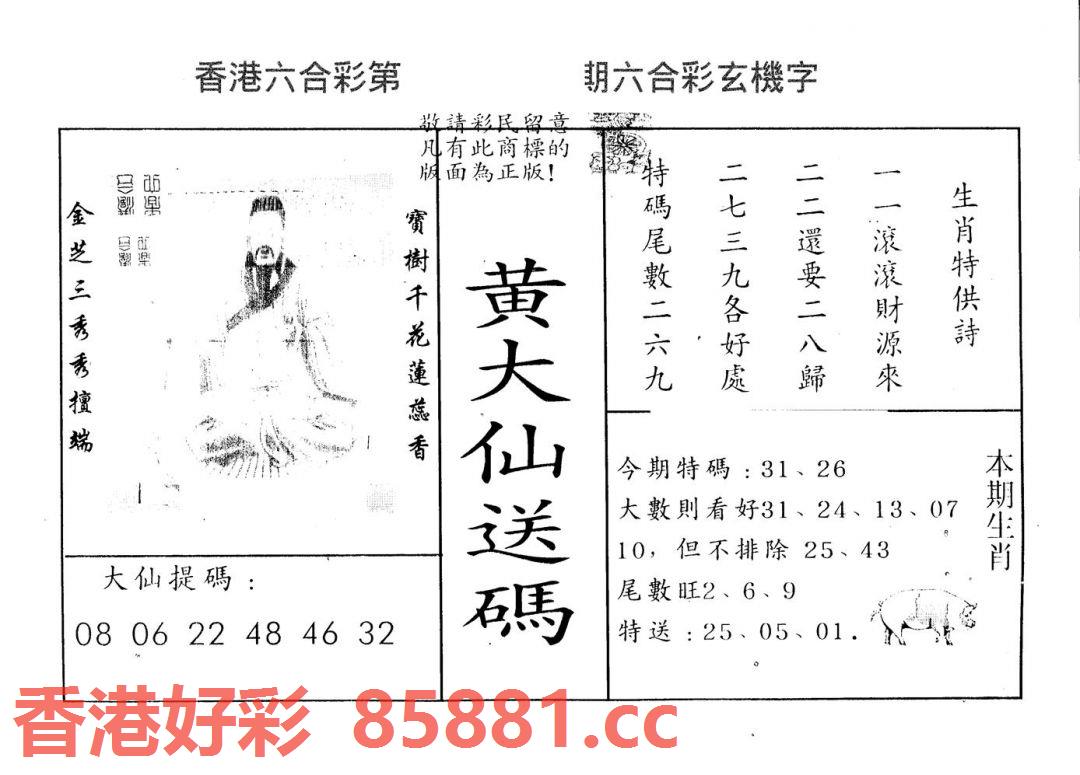 香港六合彩第 期六合彩玄機字
敬請彩民留意
凡有此商標的
版面為正版!
金芝三秀秀擅端
寶樹千花蓮蕊香
大仙提碼:
08 06 22 48 46 32
黃大仙送碼
生肖特供詩
一一滾滾財源來
二二還要二八歸
二七三九各好處
特碼尾數二六九
今期特碼:31、26
大數則看好31、24、13、07
10,但不排除 25、43
尾數旺2、6、9
特送:25、05、01.
本期生肖
香港好彩 85881.cc